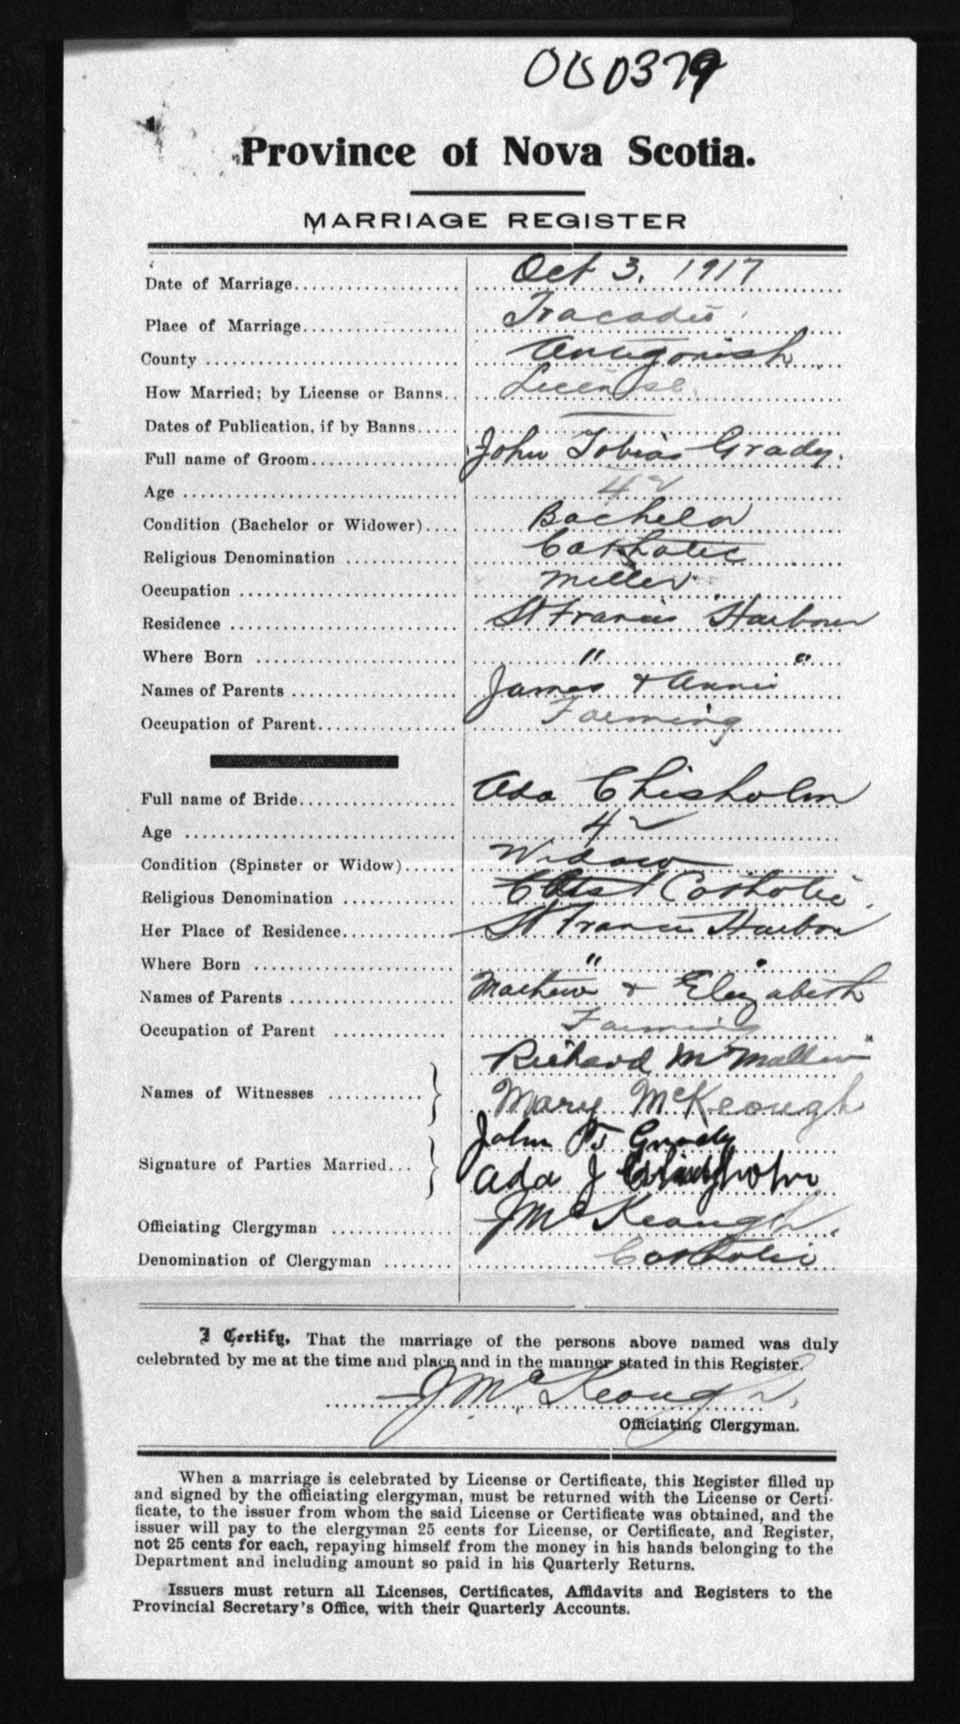 000379
Province of Nova Scotia.
MARRIAGE REGISTER
Date of Marriage Oct 3. 1917
Place of Marriage Tracadie
County Antigonish
How Married; by License or Banns License
Dates of Publication, if by Banns —
Full name of Groom John Tobias Grady.
Age 42
Condition (Bachelor or Widower) Bachelor
Religious Denomination Catholic
Occupation Miller
Residence St Francis Harbour
Where Born " "
Names of Parents James & Annie
Occupation of Parent Farming
Full name of Bride Ada Chisholm
Age 42
Condition (Spinster or Widow) Widow
Religious Denomination Catholic.
Her Place of Residence St Francis Harbor
Where Born " "
Names of Parents Mathew & Elizabeth
Occupation of Parent Farming
Richard
Names of Witnesses
Mary McKeough
John T Grady
Signature of Parties Married
Ada J Chisholm
Officiating Clergyman J McKeough.
Denomination of Clergyman Catholic
I Certify, That the marriage of the persons above named was duly
celebrated by me at the time and place and in the manner stated in this Register.
J McKeough.
Officiating Clergyman.
When a marriage is celebrated by License or Certificate, this Register filled up
and signed by the officiating clergyman, must be returned with the License or Certi-
ficate, to the issuer from whom the said License or Certificate was obtained, and the
issuer will pay to the clergyman 25 cents for License, or Certificate, and Register,
not 25 cents for each, repaying himself from the money in his hands belonging to the
Department and including amount so paid in his Quarterly Returns.
Issuers must return all Licenses, Certificates, Affidavits and Registers to the
Provincial Secretary's Office, with their Quarterly Accounts.